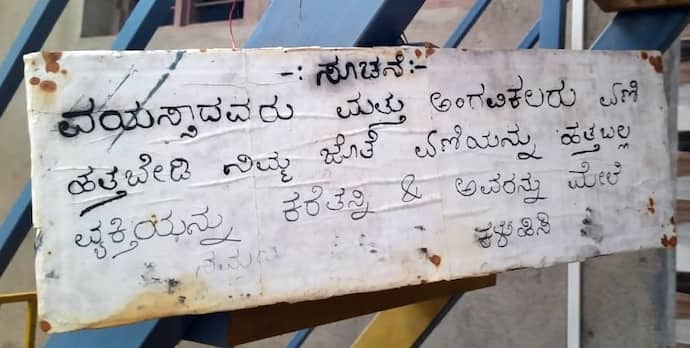 -: ಸೂಚನೆ:-
ವಯಸ್ಸಾದವರು ಮತ್ತು ಅಂಗವಿಕಲರು ಏಣಿ
ಹತ್ತಬೇಡಿ ನಿಮ್ಮ ಜೊತೆ ಏಣಿಯನ್ನು ಹತ್ತಬಲ್ಲ
ವ್ಯಕ್ತಿಯನ್ನು ಕರೆತನ್ನಿ & ಅವರನ್ನು ಮೇಲೆ
ಕಳುಹಿಸಿ